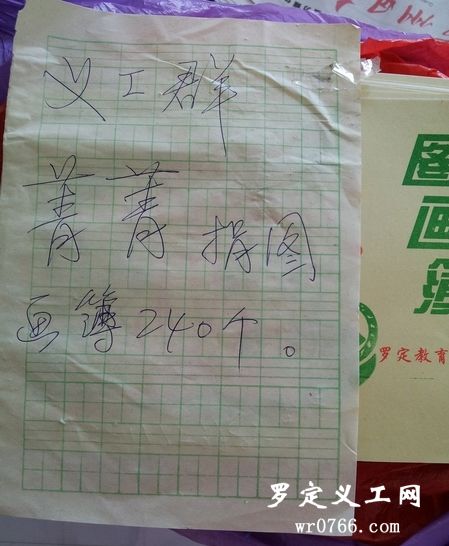 义工群
菁菁捐图
画簿240个。
图画簿
罗定教育
罗定义工网
wr0766.com